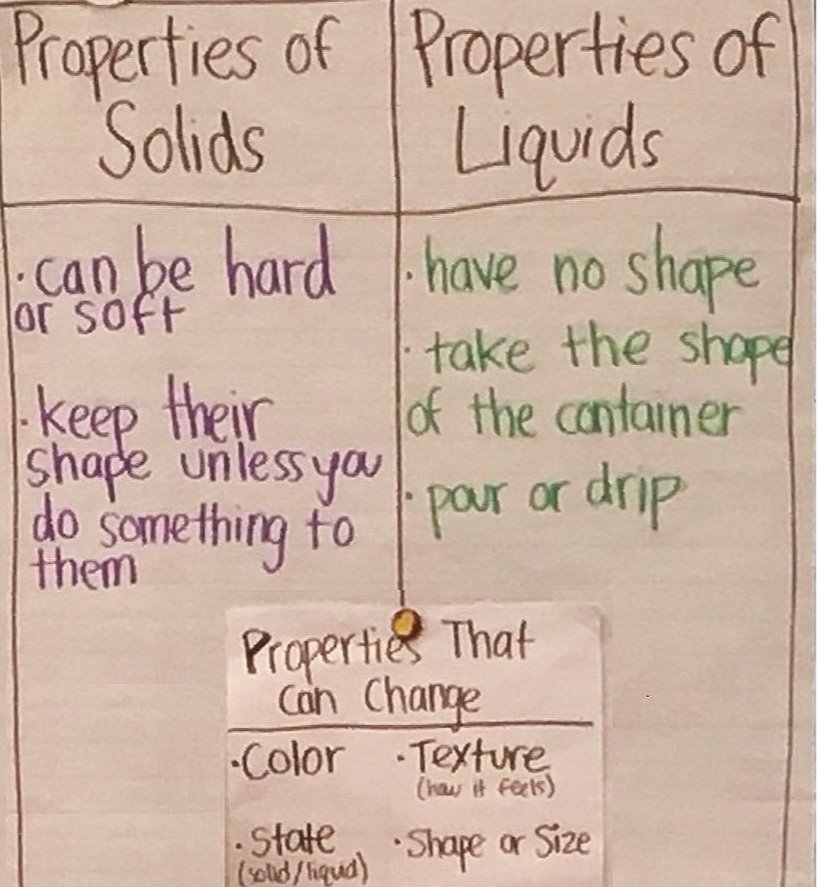 Properties of
Solids
· can be hard
or soft
· keep their
shape unless you
do something to
them
Properties of
Liquids
· have no shape
· take the shape
of the container
· pour or drip
Properties That
Can Change
· Color
· Texture
(how it feels)
· State
(solid/liquid)
· Shape or Size